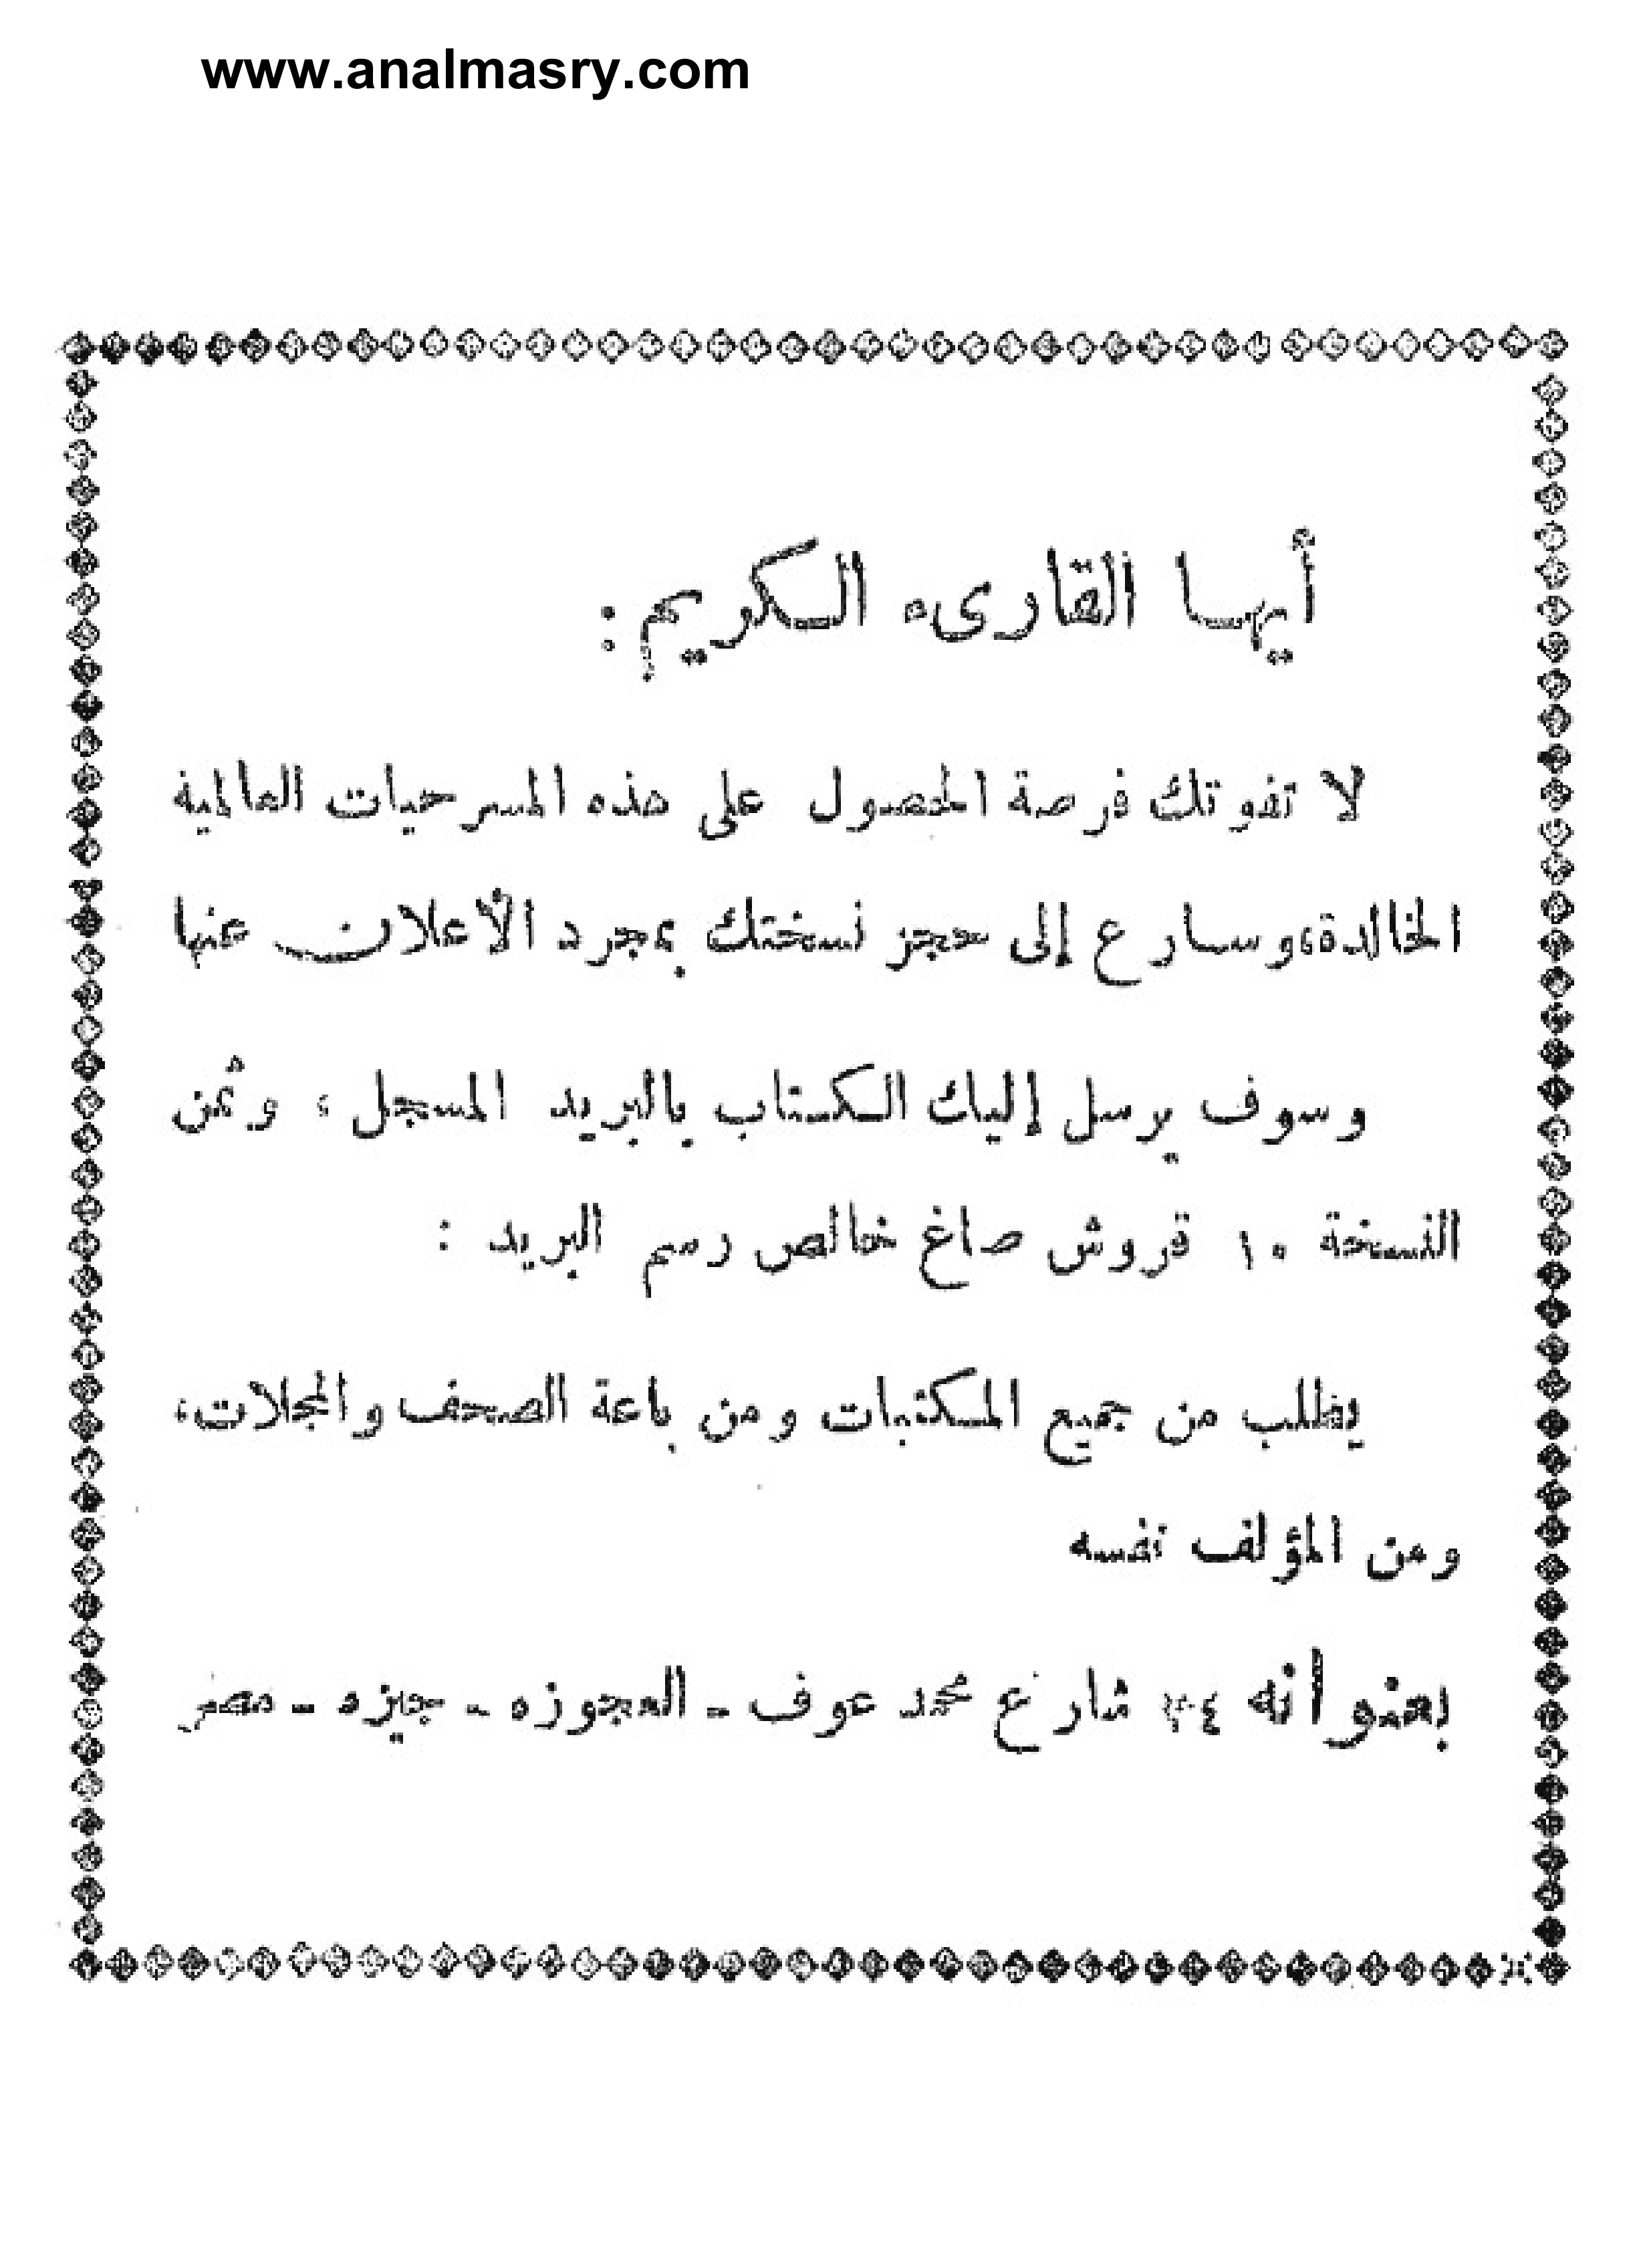 www.analmasry.com
أيها القارىء الكريم :
لا تفوتك فرصة الحصول على هذه المسرحيات العالمية
الخالدة،وسارع إلى حجز نسختك بمجرد الأعلان عنها
وسوف يرسل إليك الكتاب بالبريد المسجل ، وثمن
النسخة ١٠ قروش صاغ خالص رسم البريد :
يطلب من جميع المكتبات ومن باعة الصحف والمجلات،
ومن المؤلف نفسه
بعنوانه شارع محمد عوف - العجوزه - جيزه - مصر